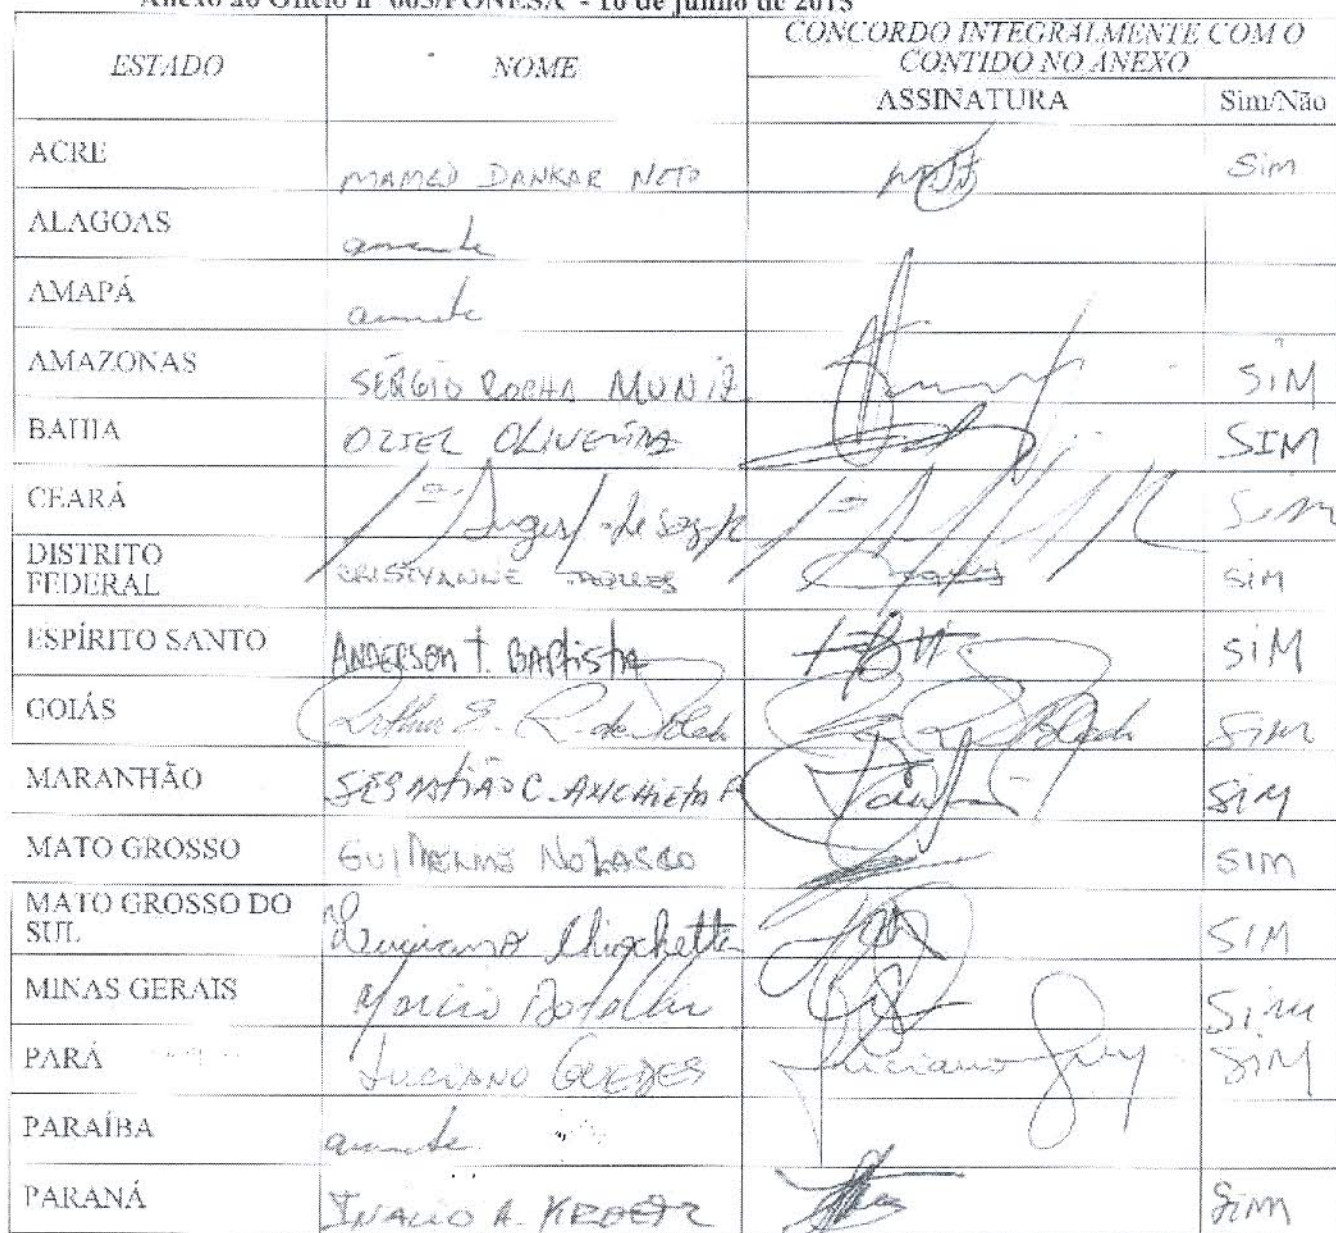 Anexo ao Ofício nº 003/FONESA - 16 de junho de 2015
ESTADO
NOME
CONCORDO INTEGRALMENTE COM O
CONTIDO NO ANEXO
ASSINATURA
Sim/Não
ACRE MAMED DANKAR NETO Sim
ALAGOAS ausente
AMAPÁ ausente
AMAZONAS SÉRGIO ROCHA MUNIZ SIM
BAHIA OZIEL OLIVEIRA SIM
CEARÁ Sim
DISTRITO
FEDERAL CRISTYANNE TORRES SIM
ESPÍRITO SANTO ANDERSON T. BAPTISTA SIM
GOIÁS Arthur E. de Toledo Sim
MARANHÃO SEBASTIÃO C. ANCHIETA F SIM
MATO GROSSO GUILHERME NOLASCO SIM
MATO GROSSO DO
SUL Luciano Chiochetta SIM
MINAS GERAIS Marcio Botelho Sim
PARÁ LUCIANO GUEDES Luciano SIM
PARAÍBA ausente
PARANÁ INACIO A. KROETZ Sim